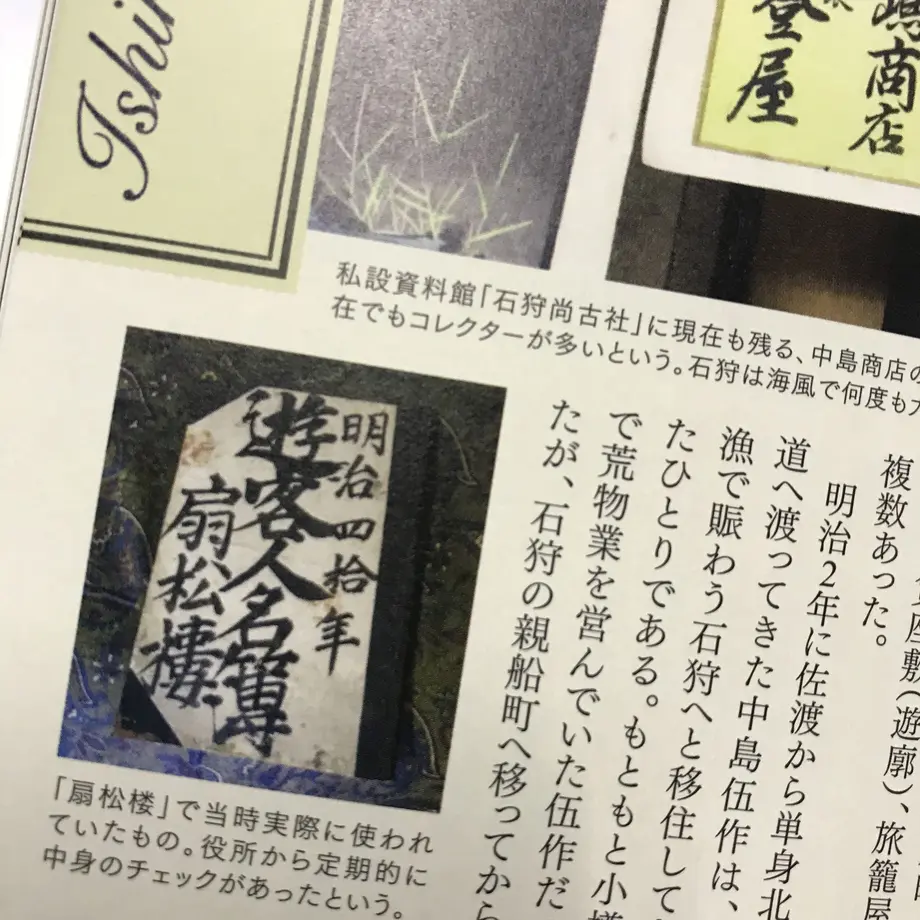 Ishi
登屋
嶋商店
私設資料館「石狩尚古社」に現在も残る、中島商店の
在でもコレクターが多いという。石狩は海風で何度も
明治四拾年
遊客人名簿
扇松楼
「扇松楼」で当時実際に使われ
ていたもの。役所から定期的に
中身のチェックがあったという。
座敷(遊廓)、旅籠屋
複数あった。
明治2年に佐渡から単身北
道へ渡ってきた中島伍作は、
漁で賑わう石狩へと移住して
たひとりである。もともと小樽
で荒物業を営んでいた伍作だ
たが、石狩の親船町へ移ってから